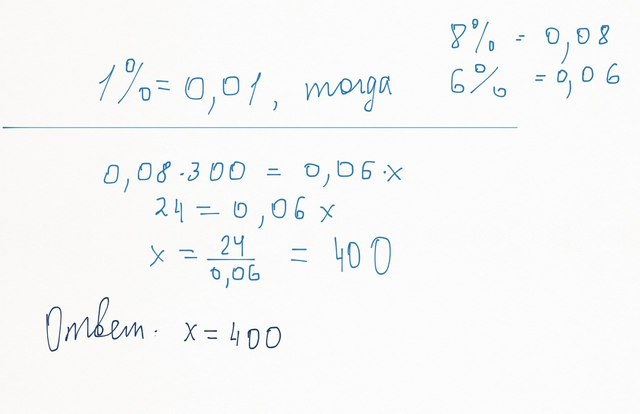 8% = 0,08
1% = 0,01, тогда
6% = 0,06
0,08·300 = 0,06·x
24 = 0,06 x
x = 24/0,06 = 400
Ответ. x = 400